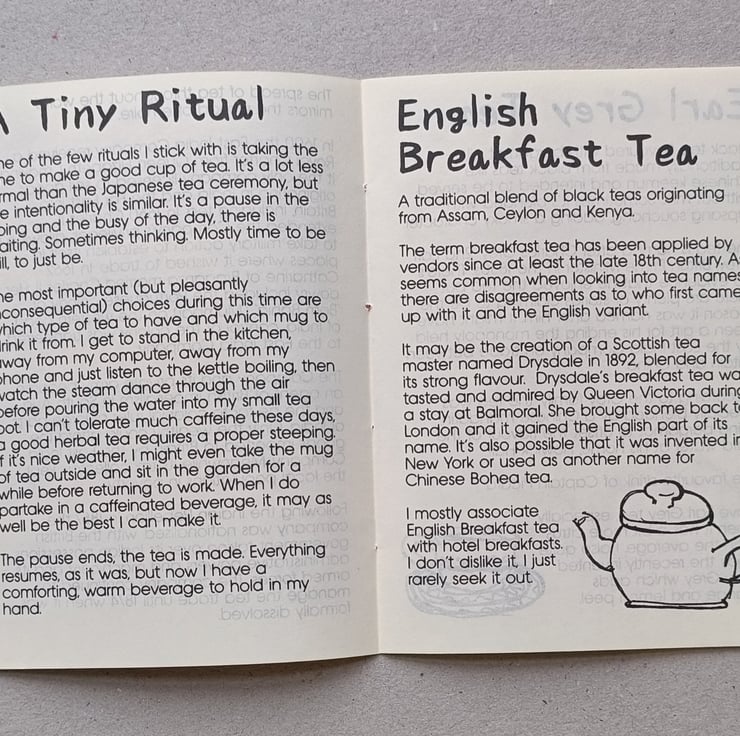 A Tiny Ritual
ne of the few rituals I stick with is taking the
ne to make a good cup of tea. It's a lot less
rmal than the Japanese tea ceremony, but
e intentionality is similar. It's a pause in the
oing and the busy of the day, there is
aiting. Sometimes thinking. Mostly time to be
ill, to just be.
he most important (but pleasantly
nconsequential) choices during this time are
which type of tea to have and which mug to
drink it from. I get to stand in the kitchen,
away from my computer, away from my
phone and just listen to the kettle boiling, then
watch the steam dance through the air
before pouring the water into my small tea
pot. I can't tolerate much caffeine these days,
a good herbal tea requires a proper steeping.
If it's nice weather, I might even take the mug
of tea outside and sit in the garden for a
while before returning to work. When I do
partake in a caffeinated beverage, it may as
well be the best I can make it.
The pause ends, the tea is made. Everything
resumes, as it was, but now I have a
comforting, warm beverage to hold in my
hand.
English
Breakfast Tea
A traditional blend of black teas originating
from Assam, Ceylon and Kenya.
The term breakfast tea has been applied by
vendors since at least the late 18th century. A
seems common when looking into tea names
there are disagreements as to who first came
up with it and the English variant.
It may be the creation of a Scottish tea
master named Drysdale in 1892, blended for
its strong flavour. Drysdale's breakfast tea wa
tasted and admired by Queen Victoria during
a stay at Balmoral. She brought some back t
London and it gained the English part of its
name. It's also possible that it was invented in
New York or used as another name for
Chinese Bohea tea.
I mostly associate
English Breakfast tea
with hotel breakfasts.
I don't dislike it, I just
rarely seek it out